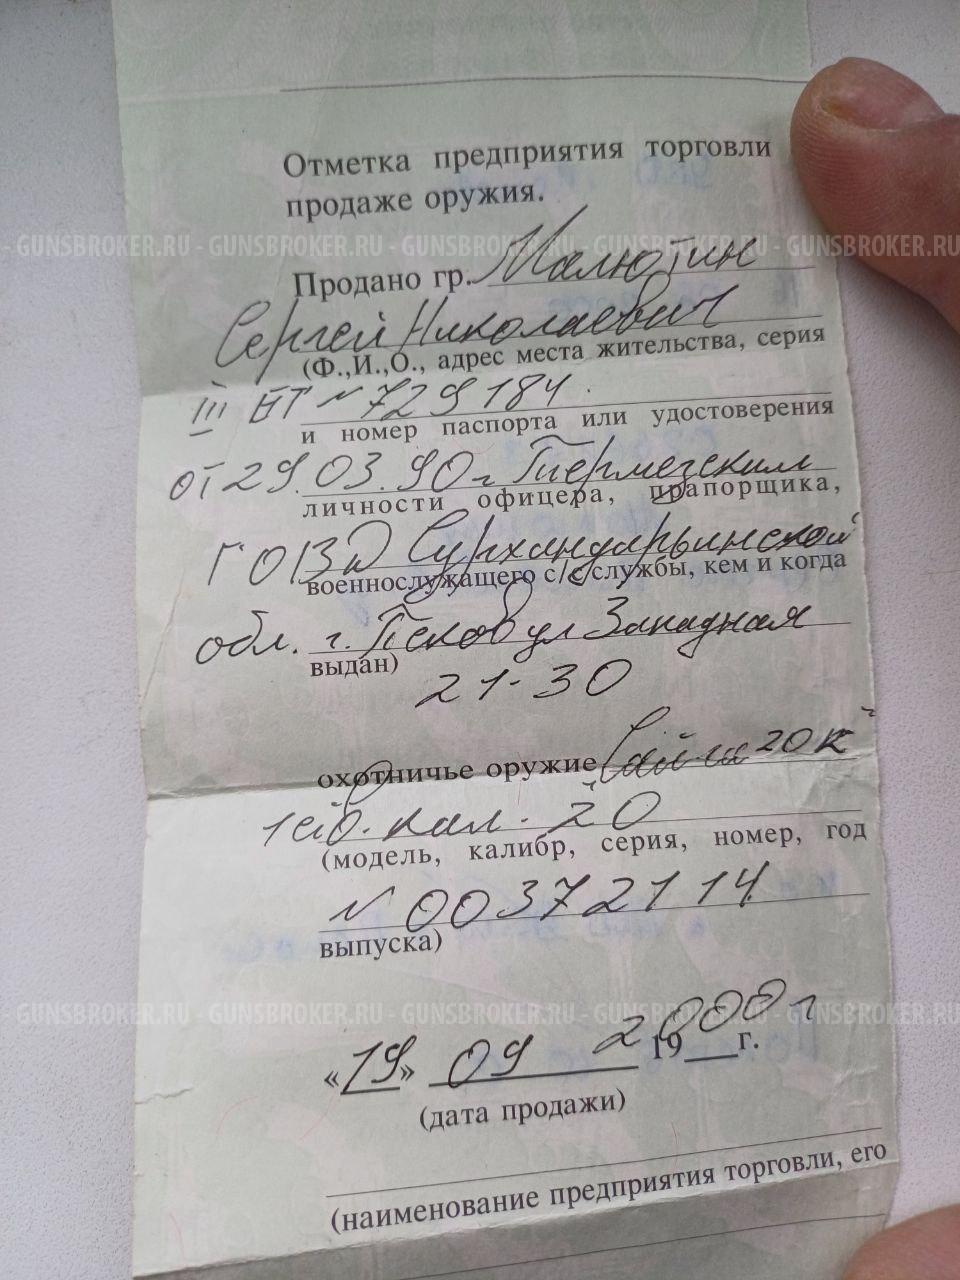 Отметка предприятия торговли
продаже оружия.
- GUNSBROKER.RU - GUNSBROKER.RU - GUNSBROKER.RU - GUNSBROKER.RU - GUNSBROKER.RU
Продано гр. Малютин
Сергей Николаевич
(Ф.,И.,О., адрес места жительства, серия
III ЕТ № 729184
и номер паспорта или удостоверения
от 29.03.90 г Термезским
личности офицера, прапорщика,
ГОВД Сурхандарьинской
военнослужащего с/с службы, кем и когда
обл. г. Псков ул Западная
выдан)
21-30
охотничье оружие Сайга 20 К
кал. 20
(модель, калибр, серия, номер, год
№ 00372114
выпуска)
GUNSBROKER.RU - GUNSBROKER.RU - GUNSBROKER.RU - GUNSBROKER.RU - GUNSBROKER.RU
«19» 09 2000 г 19 г.
(дата продажи)
(наименование предприятия торговли, его